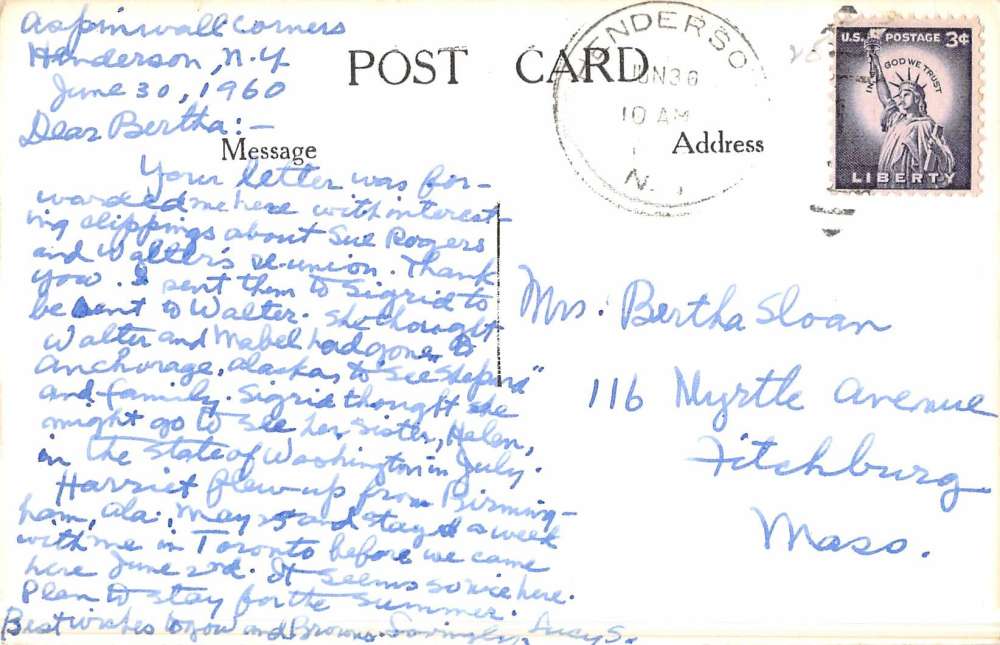 Aspinwall Corners
Henderson, N.Y
June 30, 1960
Dear Bertha:-
Your letter was for-
warded me here with interest-
ing clippings about Sue Rogers
and Walter's re-union. Thank
you. I sent them to Sigrid to
be sent to Walter. She thought
Walter and Mabel had gone to
Anchorage, Alaska, to "see Shepard"
and family. Sigrid thought she
might go to see her sister, Helen,
in the State of Washington in July.
Harriet flew up from Birming-
ham, Ala., May 25 and stayed a week
with me in Toronto before we came
here June 2nd. It seems so nice here.
Plan to stay for the summer.
Best wishes to you and Browns. Lovingly, Lucy S.
POST CARD
Message
Address
HENDERSO
JUN 30
10 AM
N.
U.S. POSTAGE 3¢
IN GOD WE TRUST
LIBERTY
Mrs. Bertha Sloan
116 Myrtle Avenue
Fitchburg
Mass.